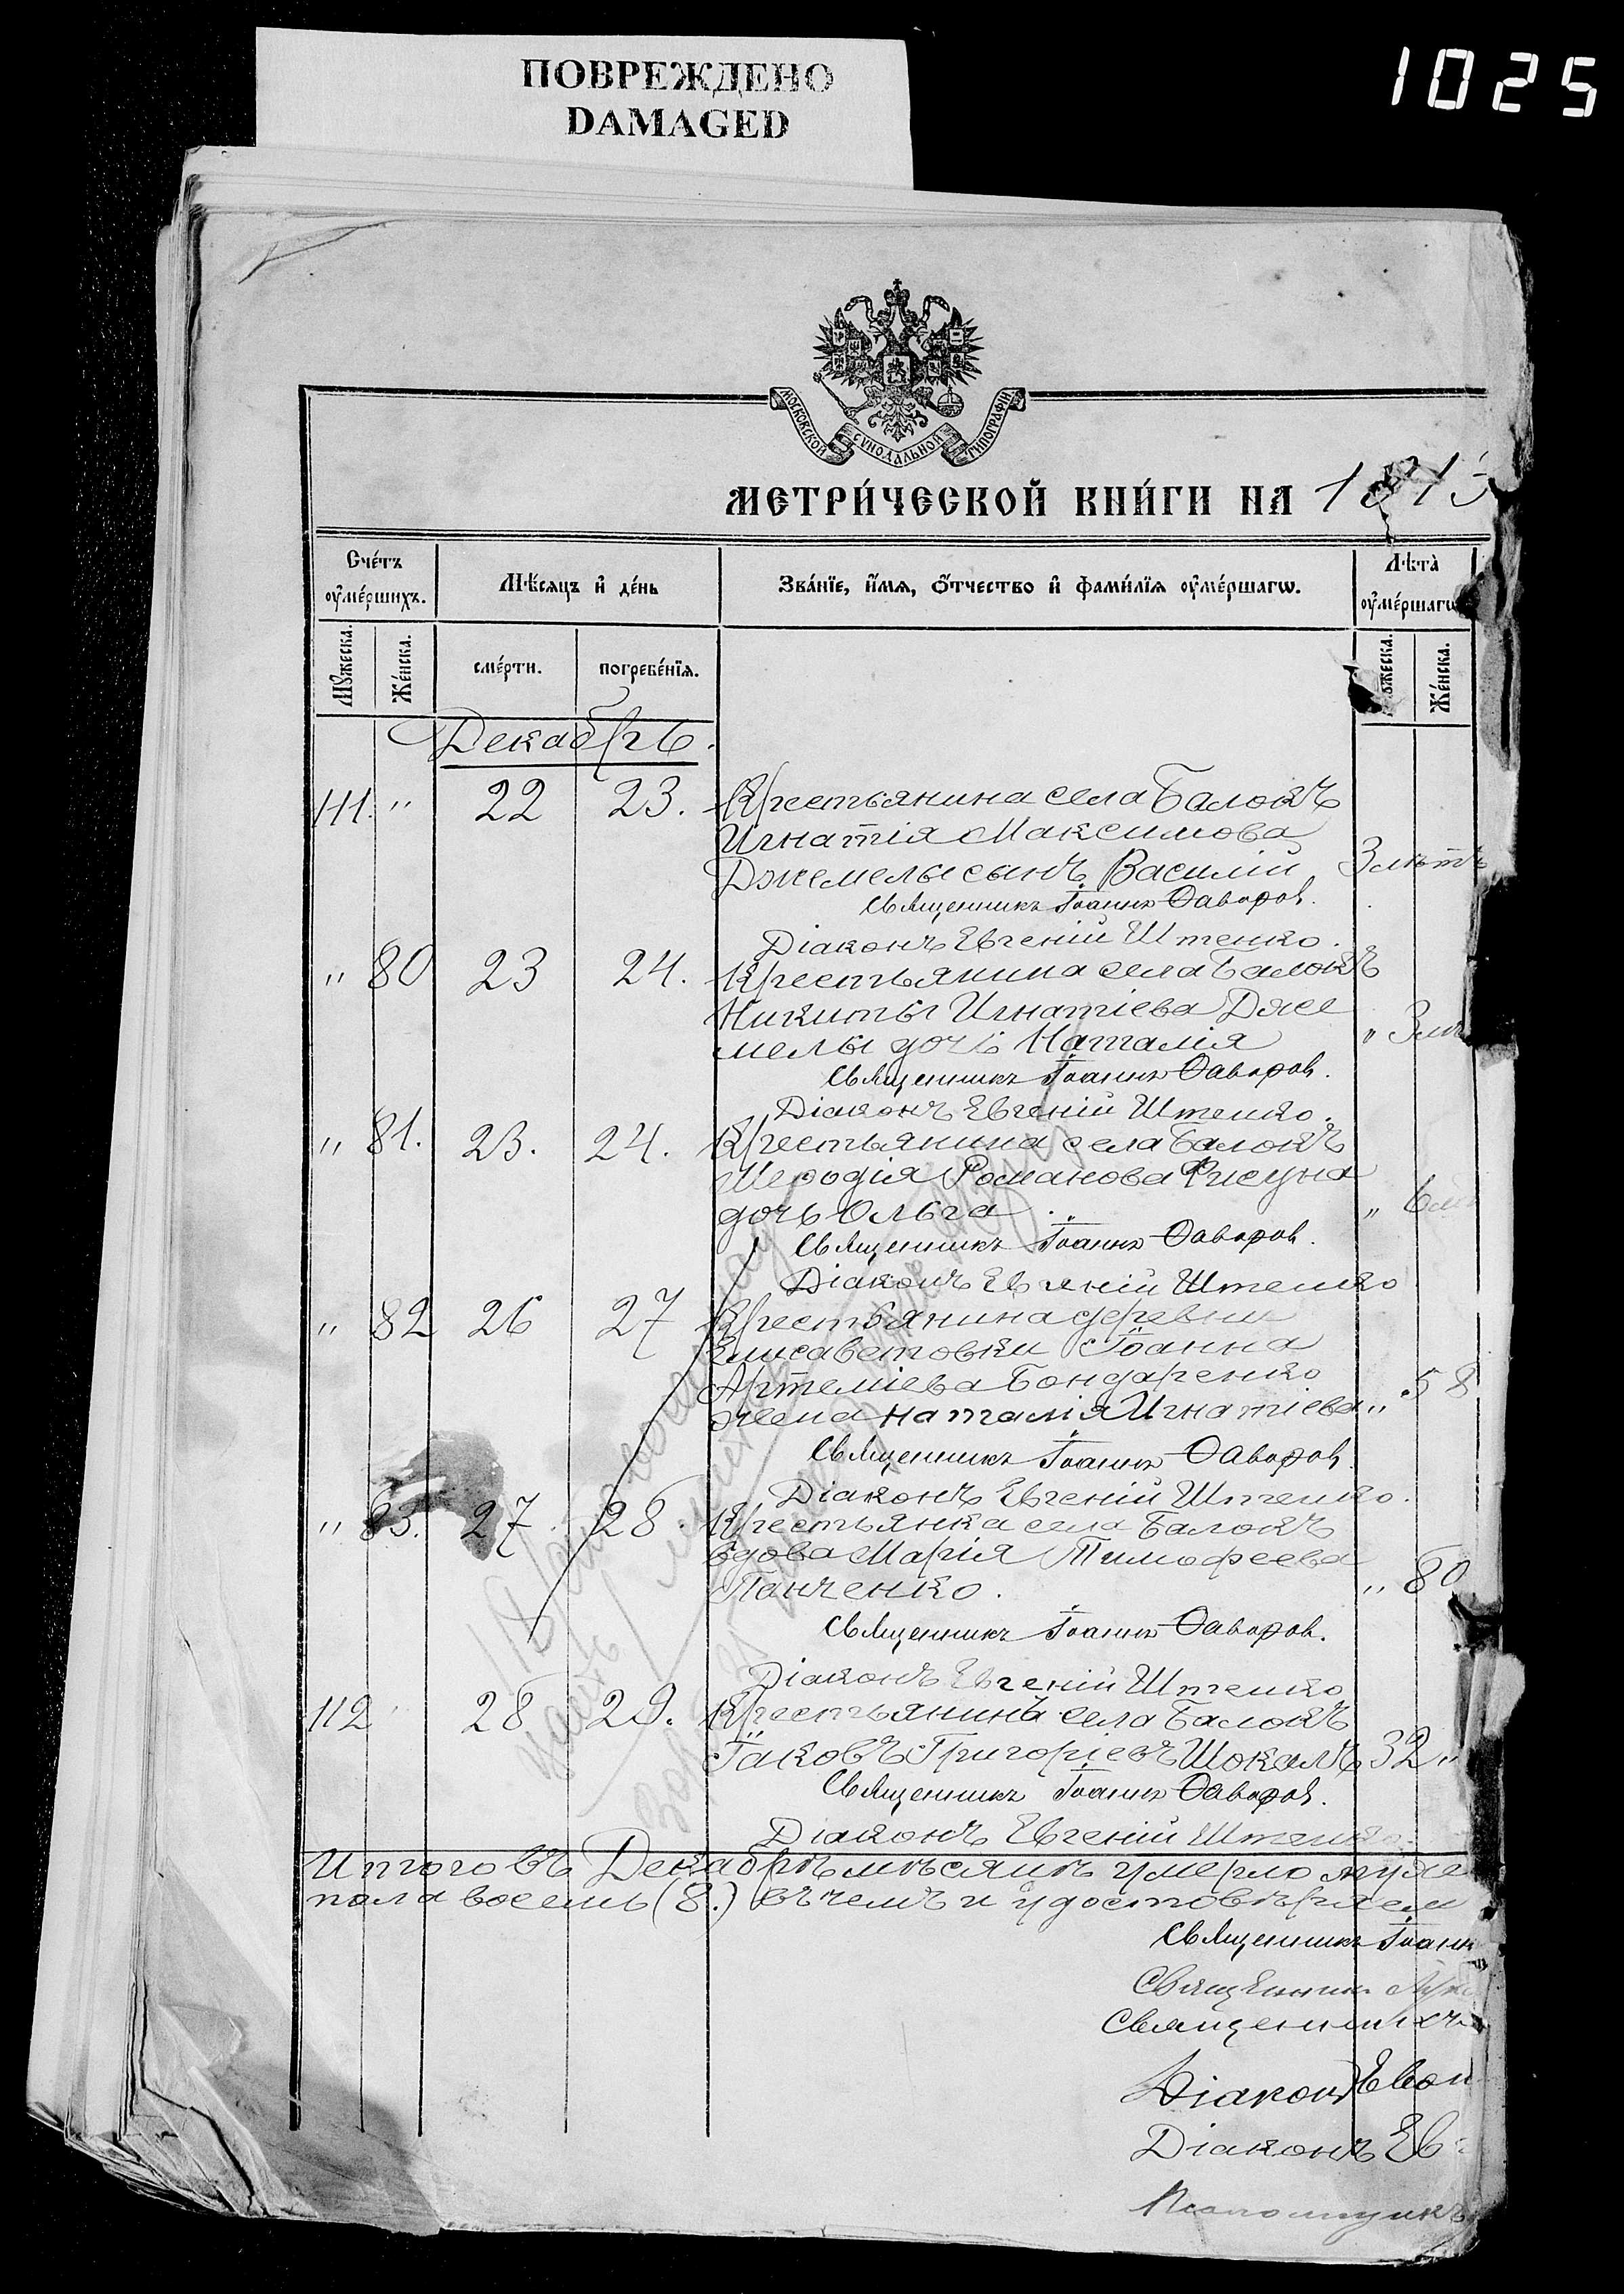 ПОВРЕЖДЕНО
DAMAGED
1025
МОСКОВСКОЙ СѴНОДАЛЬНОЙ ТИПОГРАФІИ
МЕТРИ́ЧЕСКОЙ КНИ́ГИ НА
Счéтъ ᲂу҆мéршихъ.
Мѣ́сяцъ и҆ дéнь
Звáнїе, и҆́мѧ, ѻ҆́тчество и҆ фамѝлїѧ ᲂу҆мéршагѡ.
Лѣтà ᲂу҆мéршагѡ
Мꙋ́жеска.
Жéнска.
смéрти.
погребéнїѧ.
Жéнска.
Декабрь.
111. " 22 23. Крестьянина села Балокъ
Игнатія Максимова
Джемелы сынъ Василій 3 лѣтъ
Священникъ Іоаннъ Ѳаворов.
Діаконъ Евгеній Штенко.
" 80 23 24. Крестьянина села Балокъ
Никиты Игнатіева Дже
мелы дочь Наталія " 3
Священникъ Іоаннъ Ѳаворов.
Діаконъ Евгеній Штенко.
" 81. 23. 24. Крестьянина села Балокъ
Романова
дочь Ольга. " 6
Священникъ Іоаннъ Ѳаворов.
Діаконъ Евгеній Штенко
" 82 26 27 Крестьянина деревни
Елисаветовки Іоанна
Артеміева Бондаренко
жена Наталія Игнатіева " 58
Священникъ Іоаннъ Ѳаворов.
Діаконъ Евгеній Штенко.
" 83. 27. 28. Крестьянка села Балокъ
вдова Марія Тимофеева
Панченко. " 80
Священникъ Іоаннъ Ѳаворов.
Діаконъ Евгеній Штенко
112 " 28 29. Крестьянинъ села Балокъ
Іаковъ Григоріевъ Шокалъ 32 "
Священникъ Іоаннъ Ѳаворов.
Діаконъ Евгеній Штенко.
Итого въ Декабрѣ мѣсяцѣ умерло муже
пола восемь (8.) въ чемъ и удостовѣряем
Священникъ Іоанн
Священник
Священникъ
Діаконъ
Діаконъ Ев